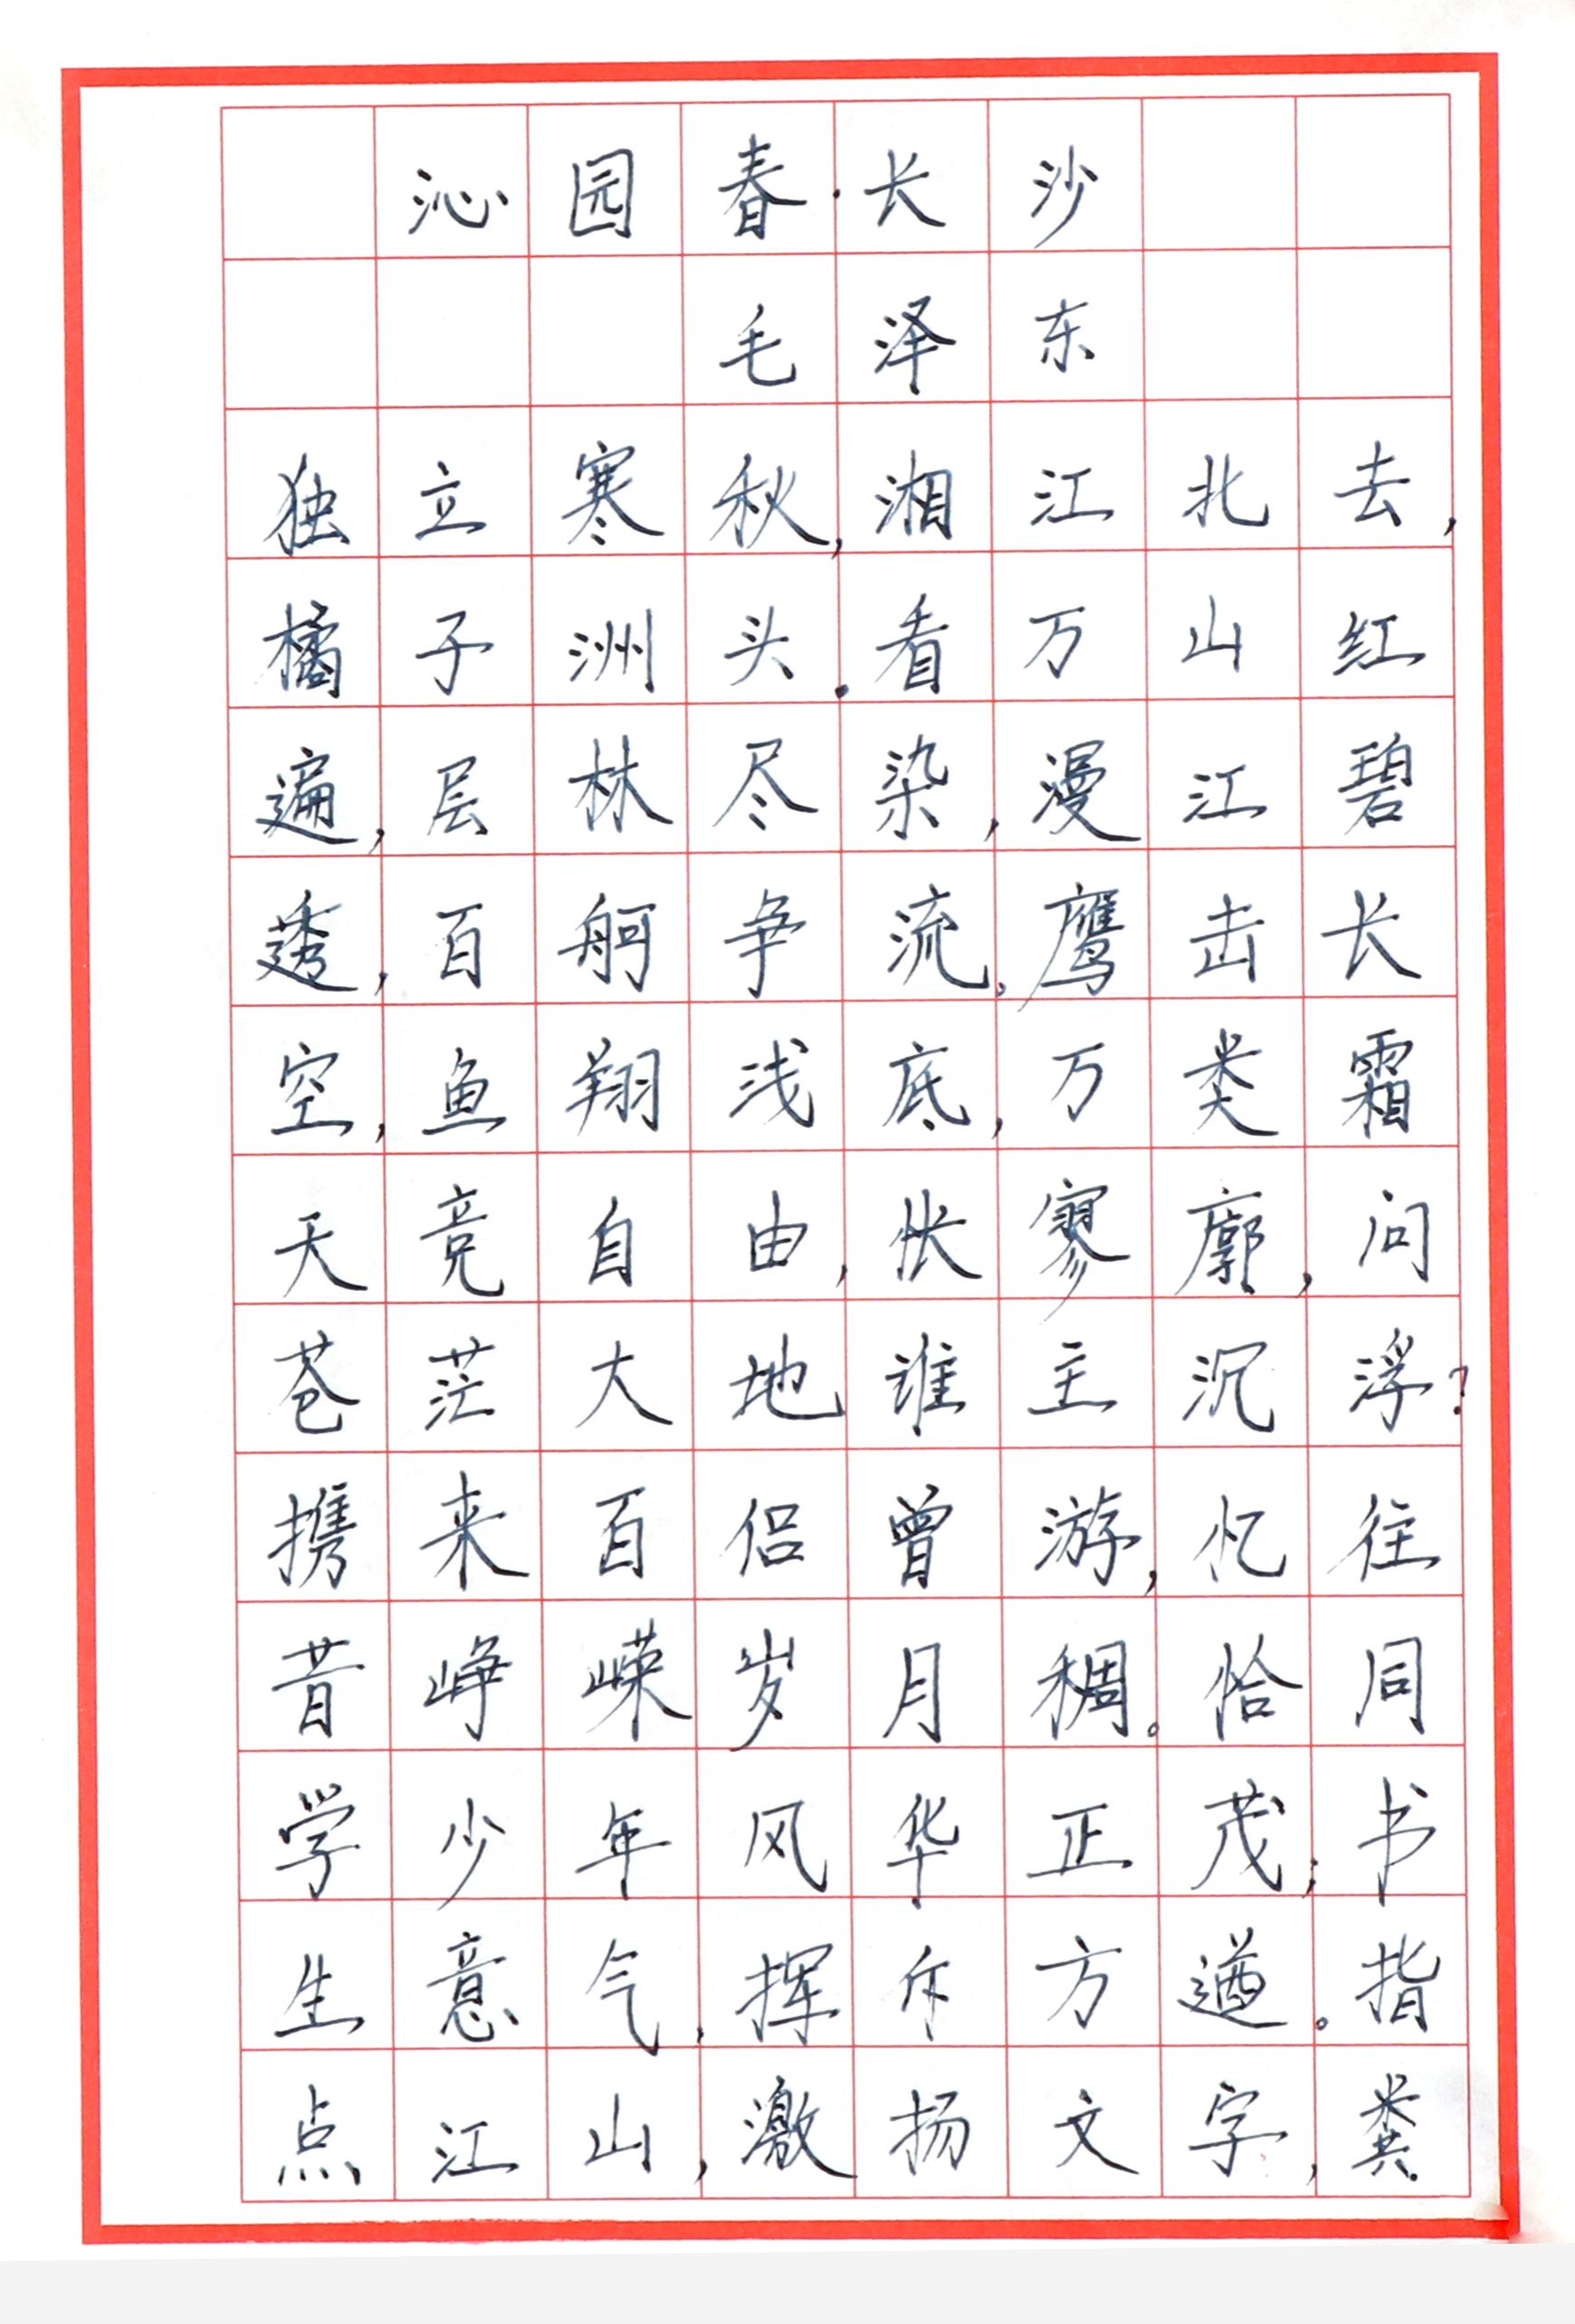 沁园春·长沙
毛泽东
独立寒秋,湘江北去,
橘子洲头.看万山红
遍,层林尽染,漫江碧
透,百舸争流。鹰击长
空,鱼翔浅底,万类霜
天竞自由,怅寥廓,问
苍茫大地谁主沉浮?
携来百侣曾游,忆往
昔峥嵘岁月稠。恰同
学少年风华正茂;书
生意气,挥斥方遒。指
点江山,激扬文字,粪